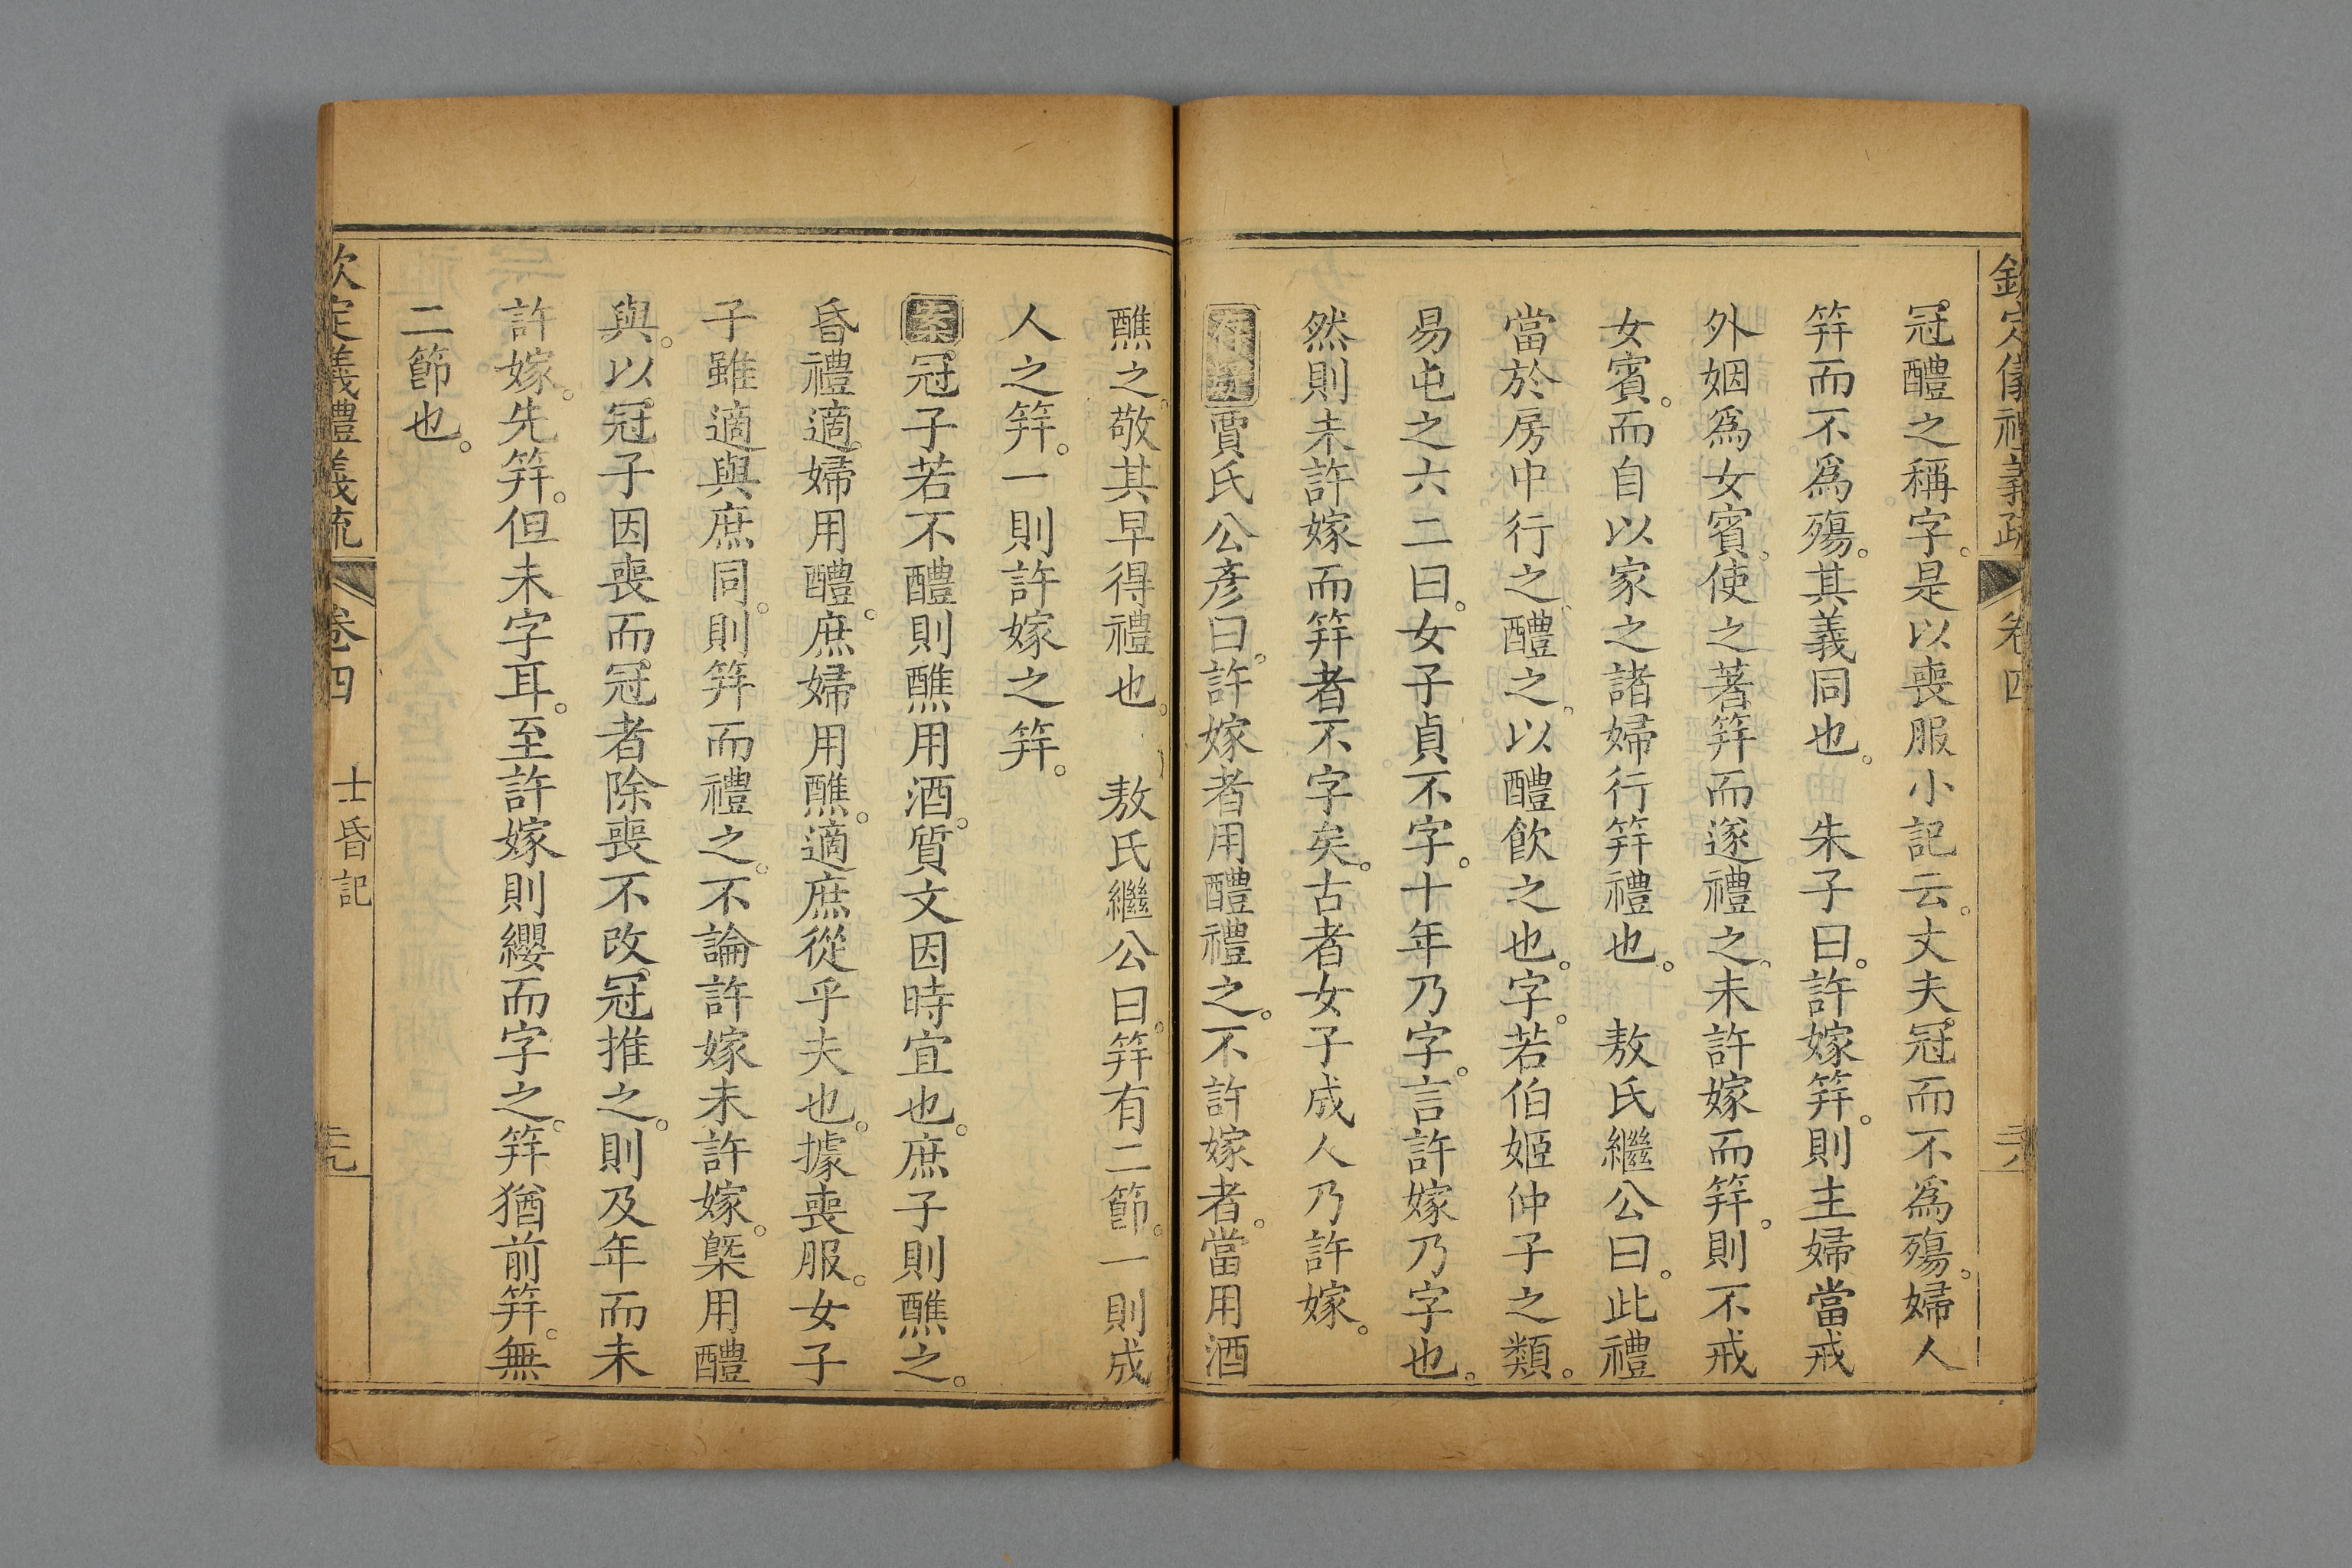 欽定儀禮義疏 卷四
冠醴之稱字。是以喪服小記云。丈夫冠而不爲殤。婦人
筓而不爲殤。其義同也。 朱子曰。許嫁筓。則主婦當戒
外姻爲女賓。使之著筓而遂禮之。未許嫁而筓。則不戒
女賓。而自以家之諸婦行筓禮也。 敖氏繼公曰。此禮
當於房中行之。醴之。以醴飲之也。字。若伯姬仲子之類。
易屯之六二曰。女子貞不字。十年乃字。言許嫁乃字也。
然則未許嫁而筓者不字矣。古者女子成人乃許嫁。
存疑賈氏公彥曰。許嫁者用醴禮之。不許嫁者。當用酒
醮之。敬其早得禮也。 敖氏繼公曰。筓有二節。一則成
人之筓。一則許嫁之筓。
案冠子若不醴則醮用酒。質文因時宜也。庶子則醮之。
昏禮適婦用醴。庶婦用醮。適庶從乎夫也。據喪服。女子
子雖適與庶同。則筓而禮之。不論許嫁未許嫁。槩用醴
與。以冠子因喪而冠者除喪不改冠推之。則及年而未
許嫁。先筓。但未字耳。至許嫁則纓而字之。筓猶前筓。無
二節也。
欽定義禮義疏 卷四 士昏記 二九